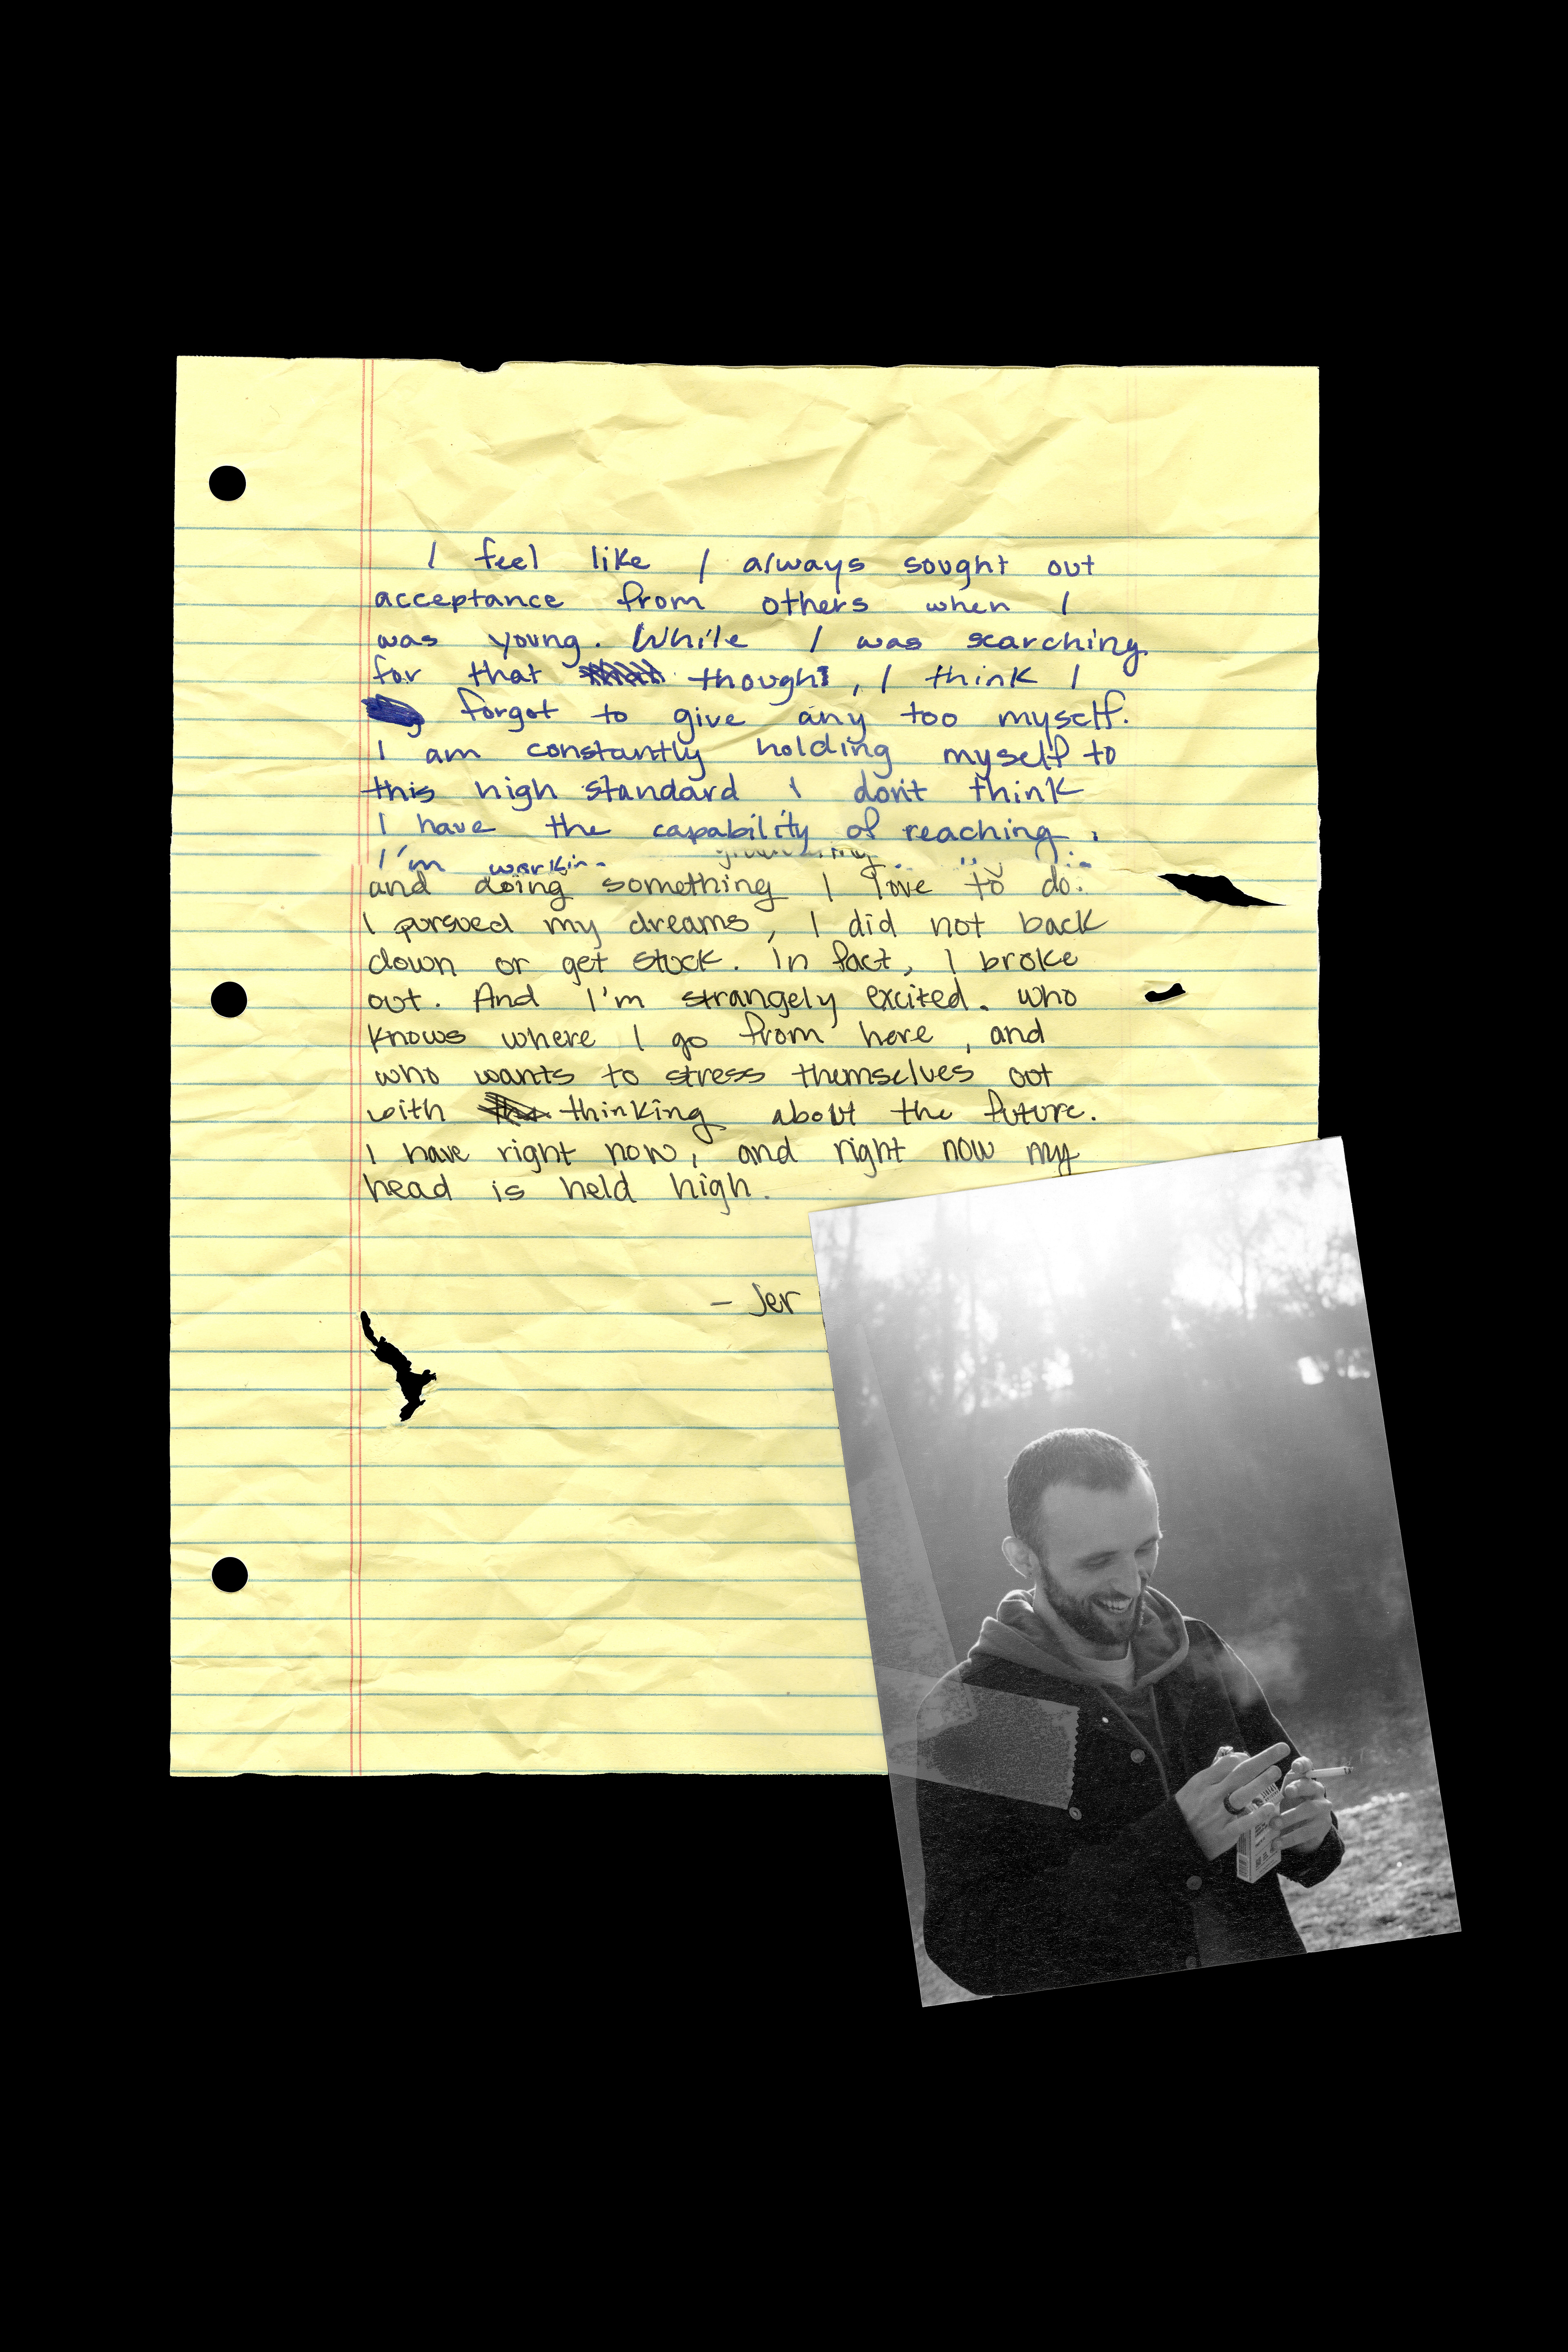 I feel like I always sought out
acceptance from others when I
was young. While I was searching
for that though, I think I
forgot to give any too myself.
I am constantly holding myself to
this high standard I don't think
I have the capability of reaching.
I'm
and doing something I love to do.
I pursued my dreams, I did not back
down or get stuck. In fact, I broke
out. And I'm strangely excited. who
knows where I go from here, and
who wants to stress themselves out
with thinking about the future.
I have right now, and right now my
head is held high.
- Jer